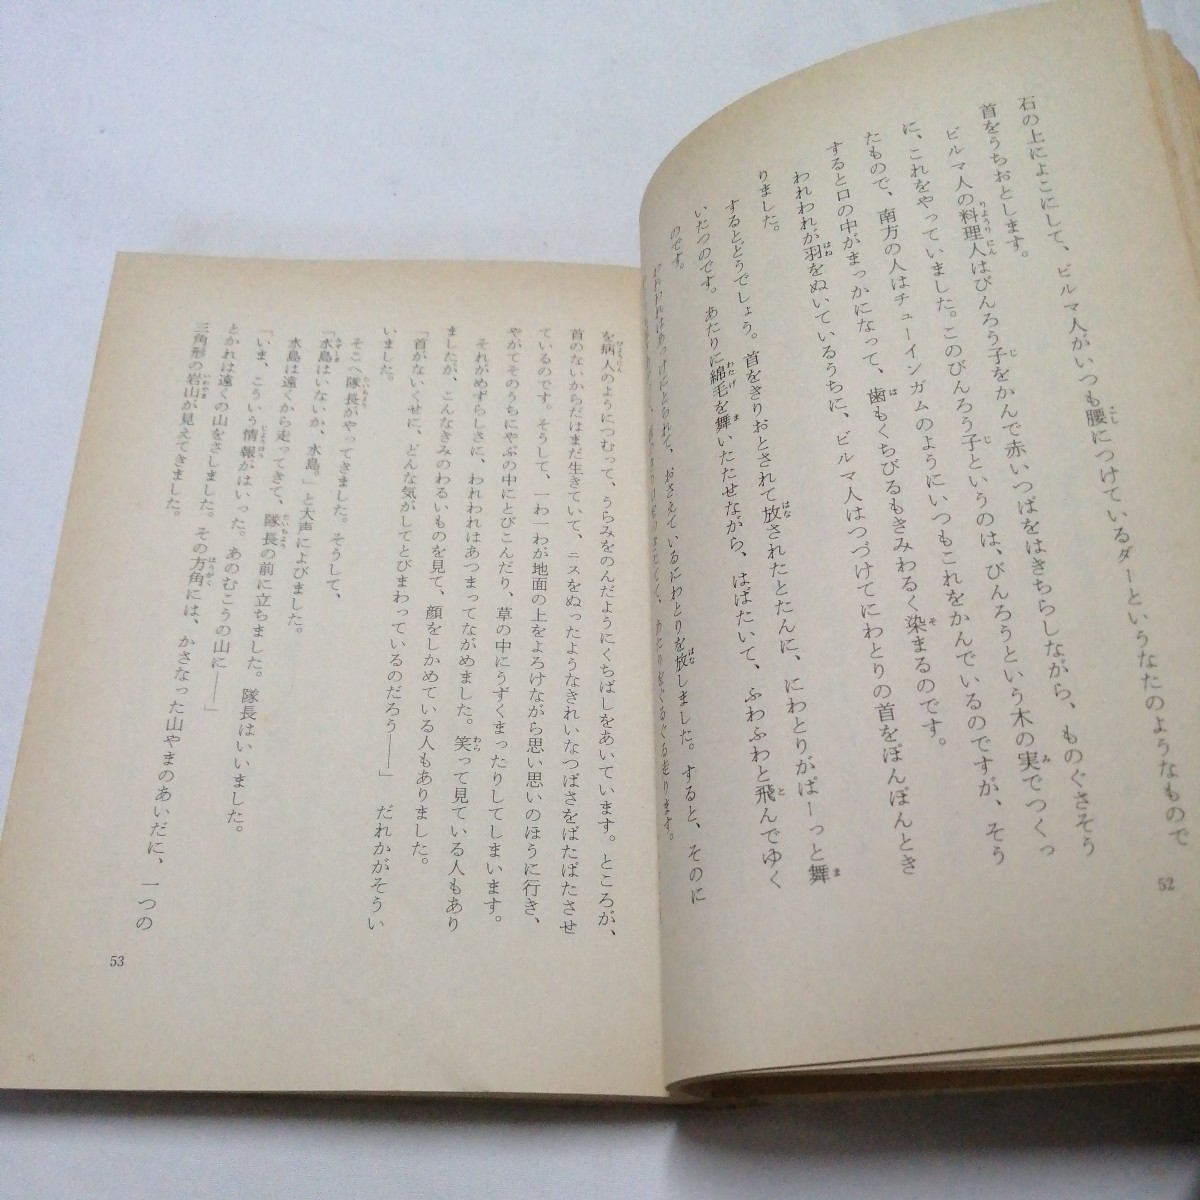 石の上によこにして、ビルマ人がいつも腰につけているダーというなたのようなもので
首をうちおとします。
ビルマ人の料理人はびんろう子をかんで赤いつばをはきちらしながら、ものぐさそう
に、これをやっていました。このびんろう子というのは、びんろうという木の実でつくっ
たもので、南方の人はチューインガムのようにいつもこれをかんでいるのですが、そう
すると口の中がまっかになって、歯もくちびるもきみわるく染まるのです。
われわれが羽をぬいているうちに、ビルマ人はつづけてにわとりの首をぽんぽんとき
りました。
するとどうでしょう。首をきりおとされて放されたとたんに、にわとりがぱーっと舞
いたつのです。あたりに綿毛を舞いたたせながら、はばたいて、ふわふわと飛んでゆく
のです。
われわれはあっけにとられて、おさえているにわとりを放しました。すると、そのに
あたりをぐるぐる走ります。
52
を病人のようにつむって、うらみをのんだようにくちばしをあいています。ところが、
首のないからだはまだ生きていて、ニスをぬったようなきれいなつばさをばたばたさせ
ているのです。そうして、一わ一わが地面の上をよろけながら思い思いのほうに行き、
やがてそのうちにやぶの中にとびこんだり、草の中にうずくまったりしてしまいます。
それがめずらしさに、われわれはあつまってながめました。笑って見ている人もあり
ましたが、こんなきみのわるいものを見て、顔をしかめている人もありました。
「首がないくせに、どんな気がしてとびまわっているのだろう――」　だれかがそうい
いました。
そこへ隊長がやってきました。そうして、
「水島はいないか、水島。」と大声によびました。
水島は遠くから走ってきて、隊長の前に立ちました。隊長はいいました。
「いま、こういう情報がはいった。あのむこうの山に――」
とかれは遠くの山をさしました。その方角には、かさなった山やまのあいだに、一つの
三角形の岩山が見えてきました。
53